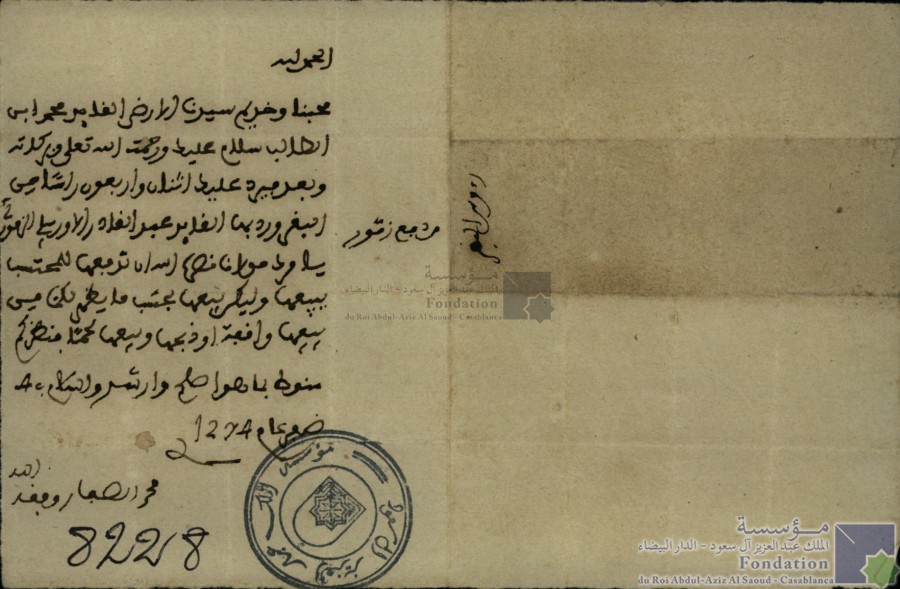 الحمد لله
محبنا وخديم سيدنا الارضى القايد محمد ابن
الطالب سلام عليك ورحمة الله تعلى وبركاته
وبعد فيرد عليك اثنان واربعون راسا من
البقر ورد بها القايد عبد القادر
يامرك مولانا نصره الله ان تدفعها للمحتسب
يبيعها وليكن بيعها بحسب ما يظهر لكن من
بيعها واقفة او ذبحها وبيعها لحما فنظركم
منوط بما هو اصلح وارشد والسلام في 4
عام 1274
محمد الصفار وفقه
الله
8228
مؤسسة
الملك عبد العزيز آل سعود - الدار البيضاء
Fondation
du Roi Abdul-Aziz Al Saoud - Casablanca
مؤسسة
الملك عبد العزيز آل سعود - الدار البيضاء
Fondation
du Roi Abdul-Aziz Al Saoud - Casablanca